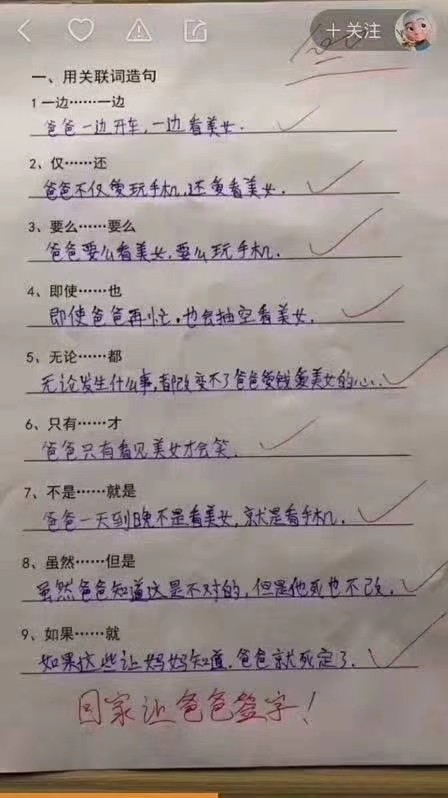 +关注
一、用关联词造句
1 一边……一边
爸爸一边开车,一边看美女.
2、仅……还
爸爸不仅爱玩手机,还爱看美女.
3、要么……要么
爸爸要么看美女,要么玩手机.
4、即使……也
即使爸爸再忙,也会抽空看美女.
5、无论……都
无论发生什么事,都改变不了爸爸爱钱爱美女的心..
6、只有……才
爸爸只有看见美女才会笑.
7、不是……就是
爸爸一天到晚不是看美女,就是看手机.
8、虽然……但是
虽然爸爸知道这是不对的,但是他死也不改.
9、如果……就
如果这些让妈妈知道.爸爸就死定了.
回家让爸爸签字!